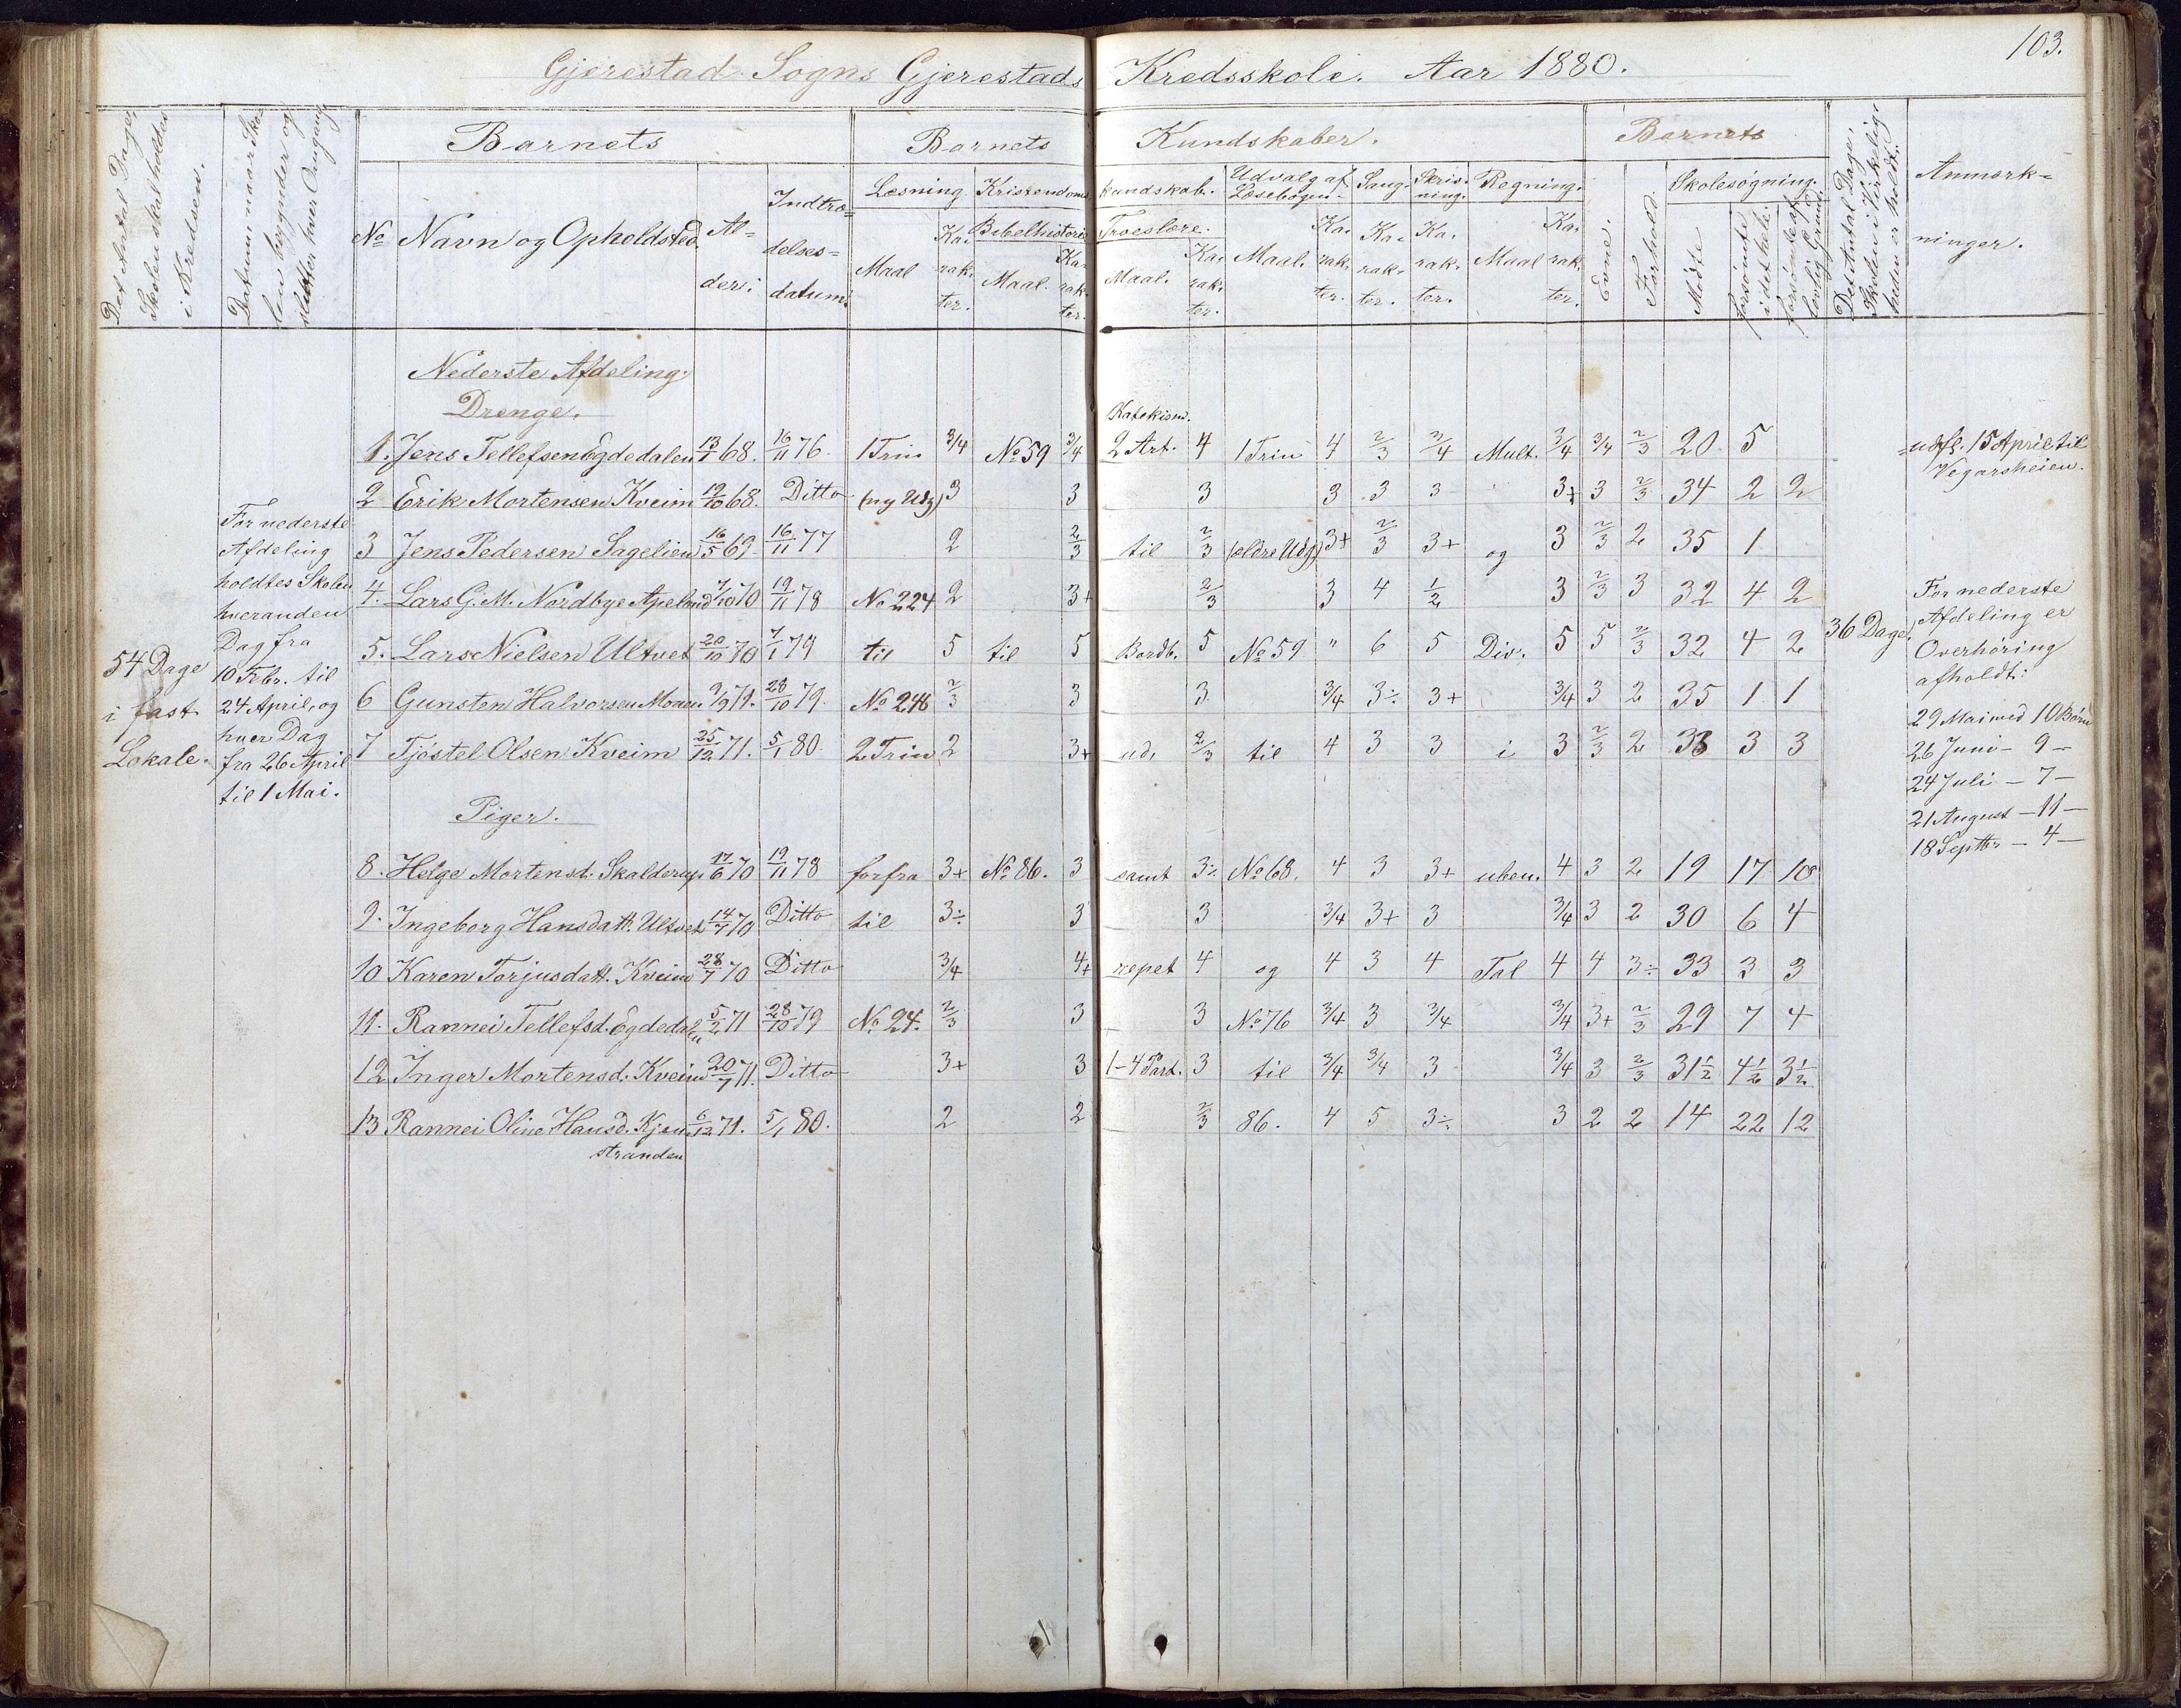 103.
Gjerestad Sogns Gjerestads Kredsskole. Aar 1880.
Det Antal Dage, Skolen skal holdes i Kredsen.
Datum, naar Skolen begynder og slutter hver Omgang
Barnets
No
Navn og Opholdsted
Alder.
Indtrædelsesdatum.
Barnets Kundskaber.
Læsning
Maal
Karakter.
Kristendomskundskab.
Bibelhistorie
Maal.
Karakter.
Troeslære.
Maal.
Karakter.
Udvalg af Læsebogen.
Maal.
Karakter.
Sang.
Karakter.
Skrivning.
Karakter.
Regning.
Maal
Karakter.
Barnets
Evne.
Forhold.
Skolesøgning.
Mødte
forsømte i det hele.
forsømte af lovlig Grund.
Det Antal Dage, Skolen i Virkeligheden er holdt.
Anmærkninger.
54 Dage
i fast
Lokale.
For nederste
Afdeling
holdtes Skolen
hveranden
Dag fra
10 Febr. til
24 April, og
hver Dag
fra 26 April
til 1 Mai.
Nederste Afdeling.
Drenge.
Katekism.
1. Jens Tellefsen Egdedalen 13/1 68. 16/11 76. 1 Trin 3/4 No 59 3/4 2 Art. 4 1 Trin 4 2/3 3/4 Mult. 3/4 3/4 2/3 20 5 udfl. 15 April til Vegarsheien.
2 Erik Mortensen Kveim 19/10 68. Ditto (ny Udg) 3 3 3 3 3 3 3+ 3 2/3 34 2 2
3 Jens Pedersen Sagelien 16/5 69 16/11 77 2 2/3 til 2/3 (ældre Udg) 3+ 2/3 3+ og 3 2/3 2 35 1
4. Lars G. M. Nordbye Apelnæs 7/10 70 19/11 78 No 224 2 3+ 2/3 3 4 1/2 3 2/3 3 32 4 2
5. Lars Nielsen Ultvet 20/10 70 7/1 79 til 5 til 5 Bordb. 5 No 59 " 6 5 Div. 5 5 2/3 32 4 2 36 Dage.
6 Gunsten Halvorsen Moen 9/9 71. 28/10 79. No 248 2/3 3 3 3/4 3÷ 3+ 3/4 3 2 35 1 1
7 Tjøstel Olsen Kveim 25/12 71. 5/1 80. 2 Trin 2 3+ ud, 2/3 til 4 3 3 i 3 2/3 2 33 3 3
For nederste
Afdeling er
Overhøring
afholdt:
29 Mai med 10 Børn
26 Juni - 9 -
24 Juli - 7 -
21 August - 11 -
18 Septbr - 4 -
Piger.
8. Helge Mortensd. Skalderup 17/6 70 19/11 78 forfra 3+ No 86. 3 samt 3÷ No 68. 4 3 3+ uben. 4 3 2 19 17 10
9. Ingeborg Hansdatt. Ultvet 14/7 70 Ditto til 3÷ 3 3 3/4 3+ 3 3/4 3 2 30 6 4
10 Karen Torjusdatt. Kveim 28/7 70 Ditto 3/4 4+ repet 4 og 4 3 4 Tal 4 4 3÷ 33 3 3
11. Rannei Tellefsd. Egdedalen 5/2 71 28/10 79 No 24. 2/3 3 3 No 76 3/4 3 3/4 3/4 3+ 2/3 29 7 4
12 Inger Mortensd. Kveim 20/7 71. Ditto 3+ 3 1-4 Part. 3 til 3/4 3/4 3 3/4 3 2/3 31½ 4½ 3½
13 Rannei Oline Hansd. Kjønstranden 6/12 71. 5/1 80. 2 2 2/3 86. 4 5 3÷ 3 2 2 14 22 12